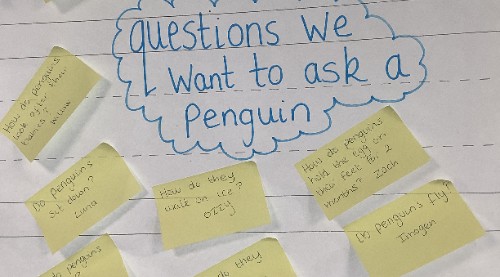 questions we
want to ask a
penguin
How do penguins
look after their
babies?
Do penguins
sit down?
Luna
How do they
walk on ice?
Ozzy
How do penguins
hold the egg on
their feet for 2
months? Zach
Do penguins fly?
Imogen
Do penguins
do they